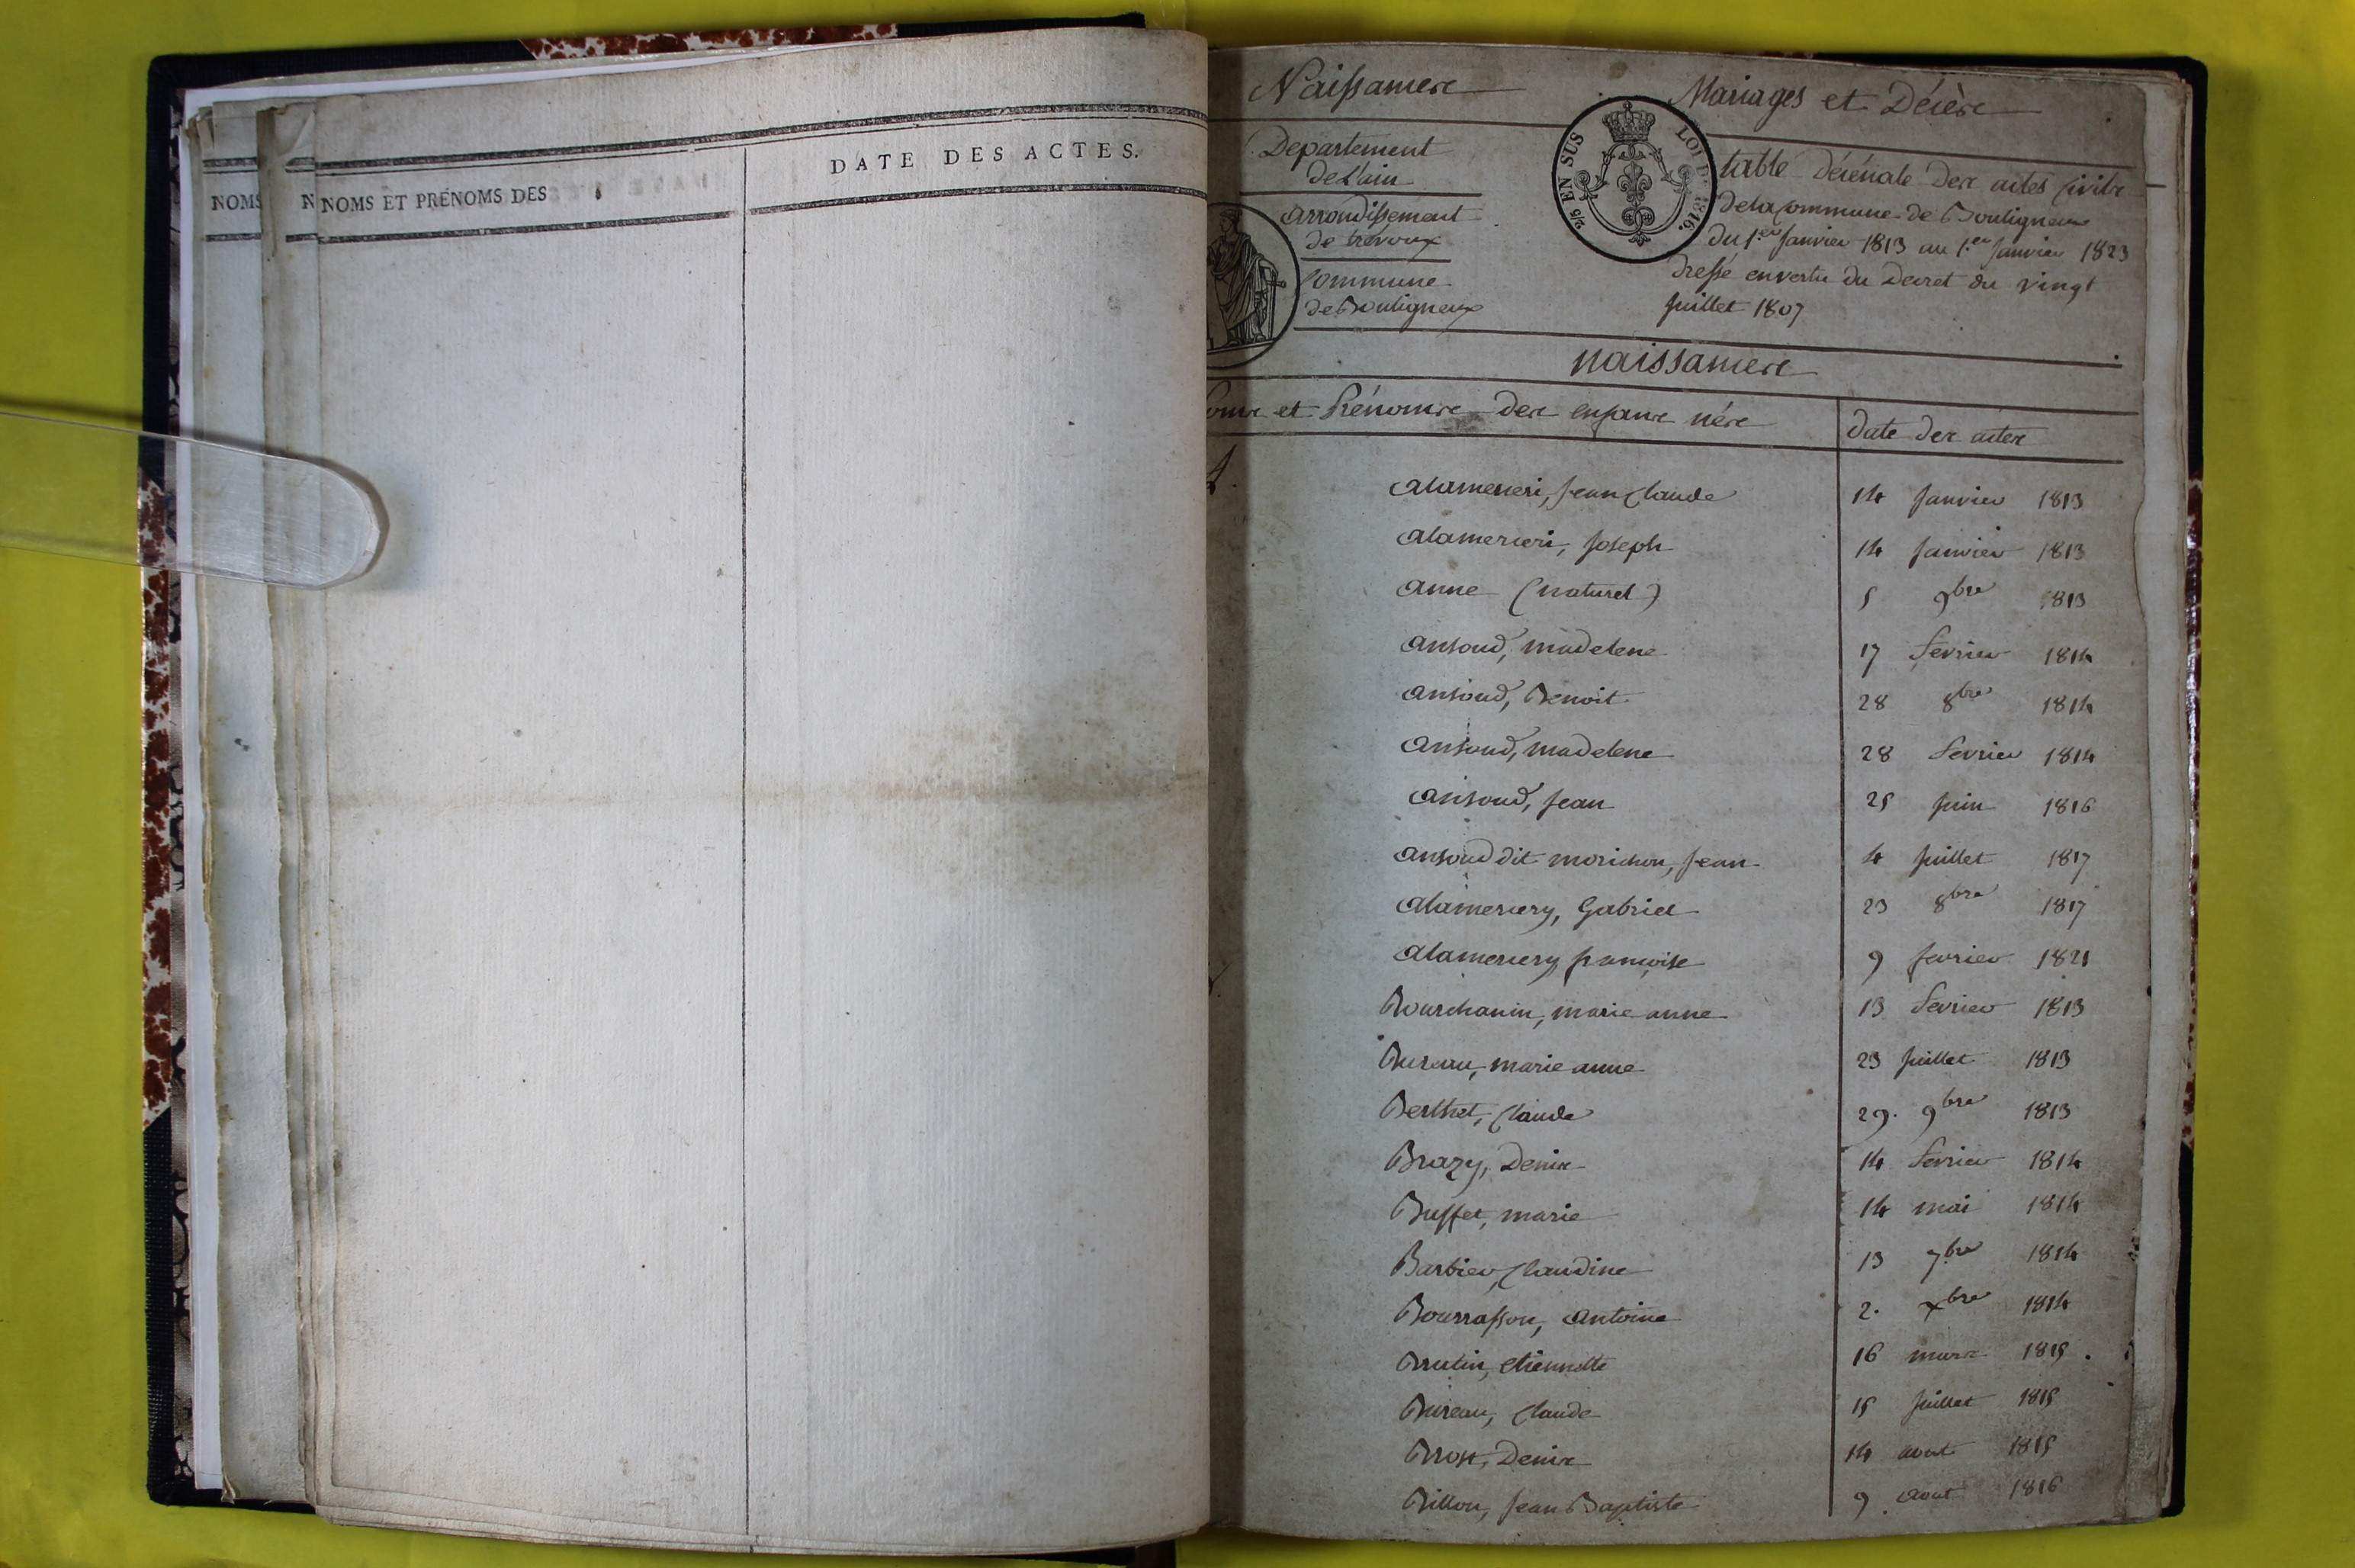 NOMS
N
NOMS ET PRÉNOMS DES
DATE DES ACTES.
Naissances
Mariages et Décès
Departement
de L'ain
arrondissement
de trevoux
Commune
de Bouligneux
2/5 EN SUS
LOI DE 1816.
table décénale des actes civils
de la Commune de Bouligneux
du 1.er Janvier 1813 au 1.er Janvier 1823
dressé envertu du Decret du vingt
Juillet 1807
naissances
et Prénoms des enfans nés
date des actes
A.
alamerceri, Jean Claude 14 Janvier 1813
alamerceri, Joseph 14 Janvier 1813
anne (naturel) 5 9bre 1813
ansoud, madelene 17 fevrier 1814
ansoud, Benoit 28 8bre 1814
ansoud, madelene 28 fevrier 1814
ansoud, Jean 25 Juin 1816
ansoud dit morichon, Jean 4 Juillet 1817
alamercery, Gabriel 23 8bre 1817
alamercery francoise 9 fevrier 1821
Bourchanin, marie anne 13 fevrier 1813
Bureau, marie anne 23 Juillet 1813
Berthet, Claude 29. 9bre 1813
Brazy, Denis 14 fevrier 1814
Buffet, marie 14 mai 1814
Barbier, Claudine 13 7bre 1814
Bourrasson, antoine 2. xbre 1814
Brutin, etiennette 16 mars 1815.
Bureau, Claude 15 Juillet 1815
Brost, Denis 14 aout 1815
Billon, Jean Baptiste 9 aout 1816